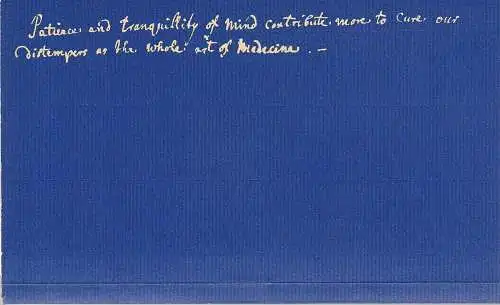 Patience and tranquillity of Mind contribute more to Cure our
distempers as the whole art of Medecine. —